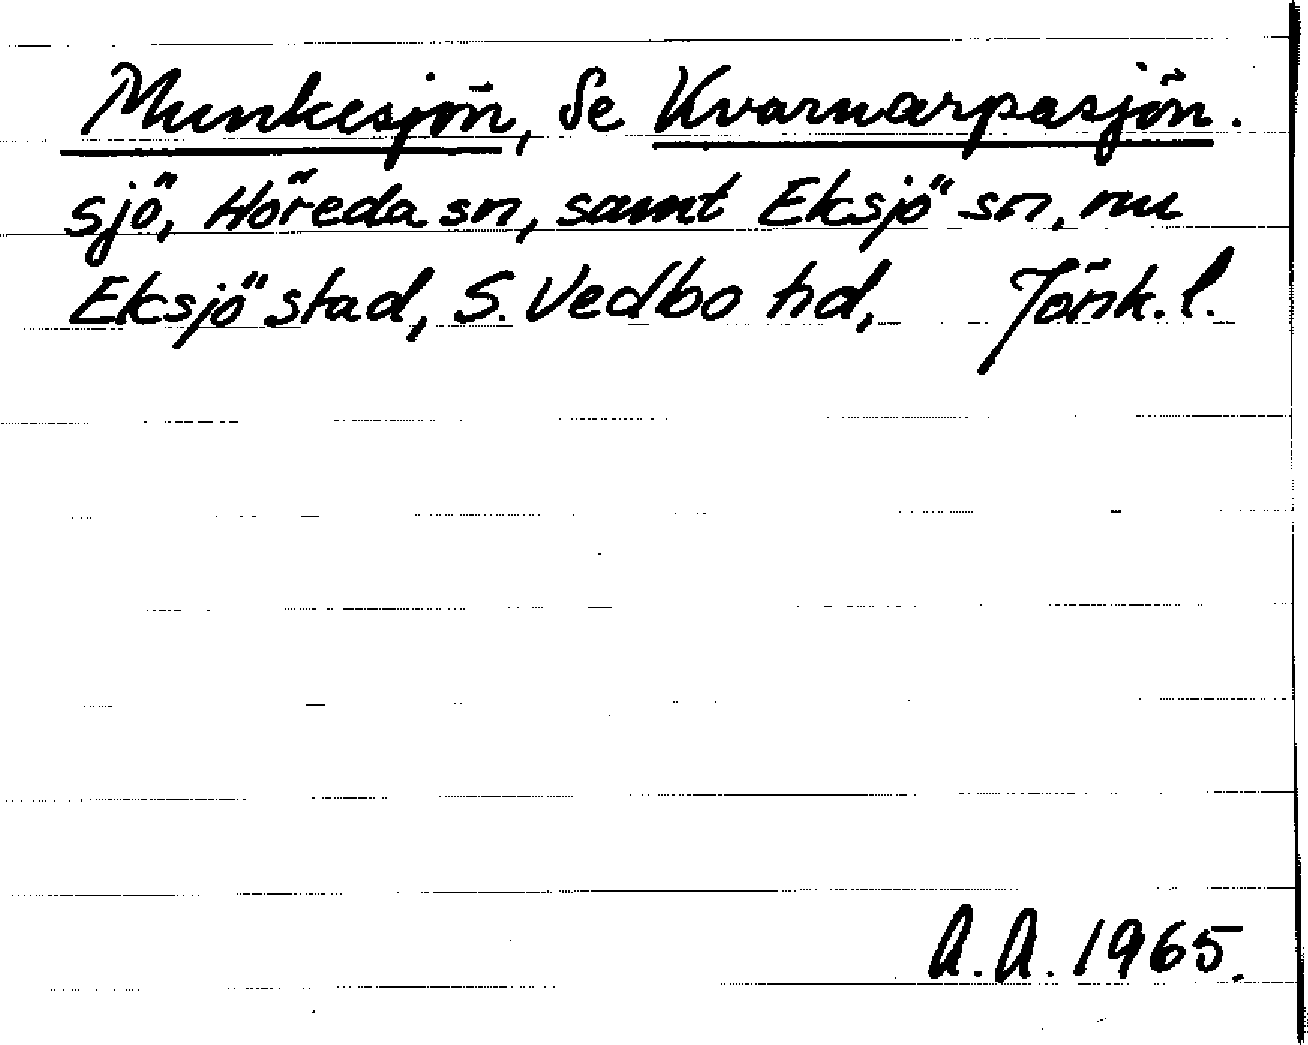 Munkesjön, Se Kvarnarpasjön.
sjö, Höreda sn, samt Eksjö sn, nu
Eksjö stad, S. Vedbo hd, Jönk. l.
A.A. 1965.